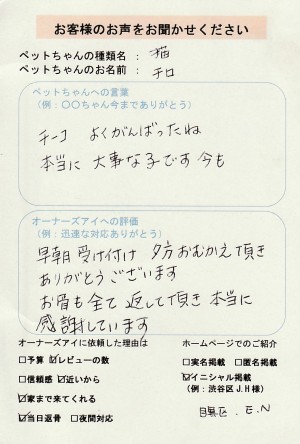 お客様のお声をお聞かせください
ペットちゃんの種類名 : 猫
ペットちゃんのお名前 : チロ
ペットちゃんへの言葉
(例:〇〇ちゃん今までありがとう)
チーコ よくがんばったね
本当に 大事な子です 今も
オーナーズアイへの評価
(例:迅速な対応ありがとう)
早朝 受け付け 夕方おむかえ頂き
ありがとうございます
お骨も全て 返して頂き 本当に
感謝しています
オーナーズアイに依頼した理由は
□予算 ☑レビューの数
□信頼感 ☑近いから
☑家まで来てくれる
☑当日返骨 □夜間対応
ホームページでのご紹介
□実名掲載 □匿名掲載
☑イニシャル掲載
(例:渋谷区J.H様)
目黒区. E.N